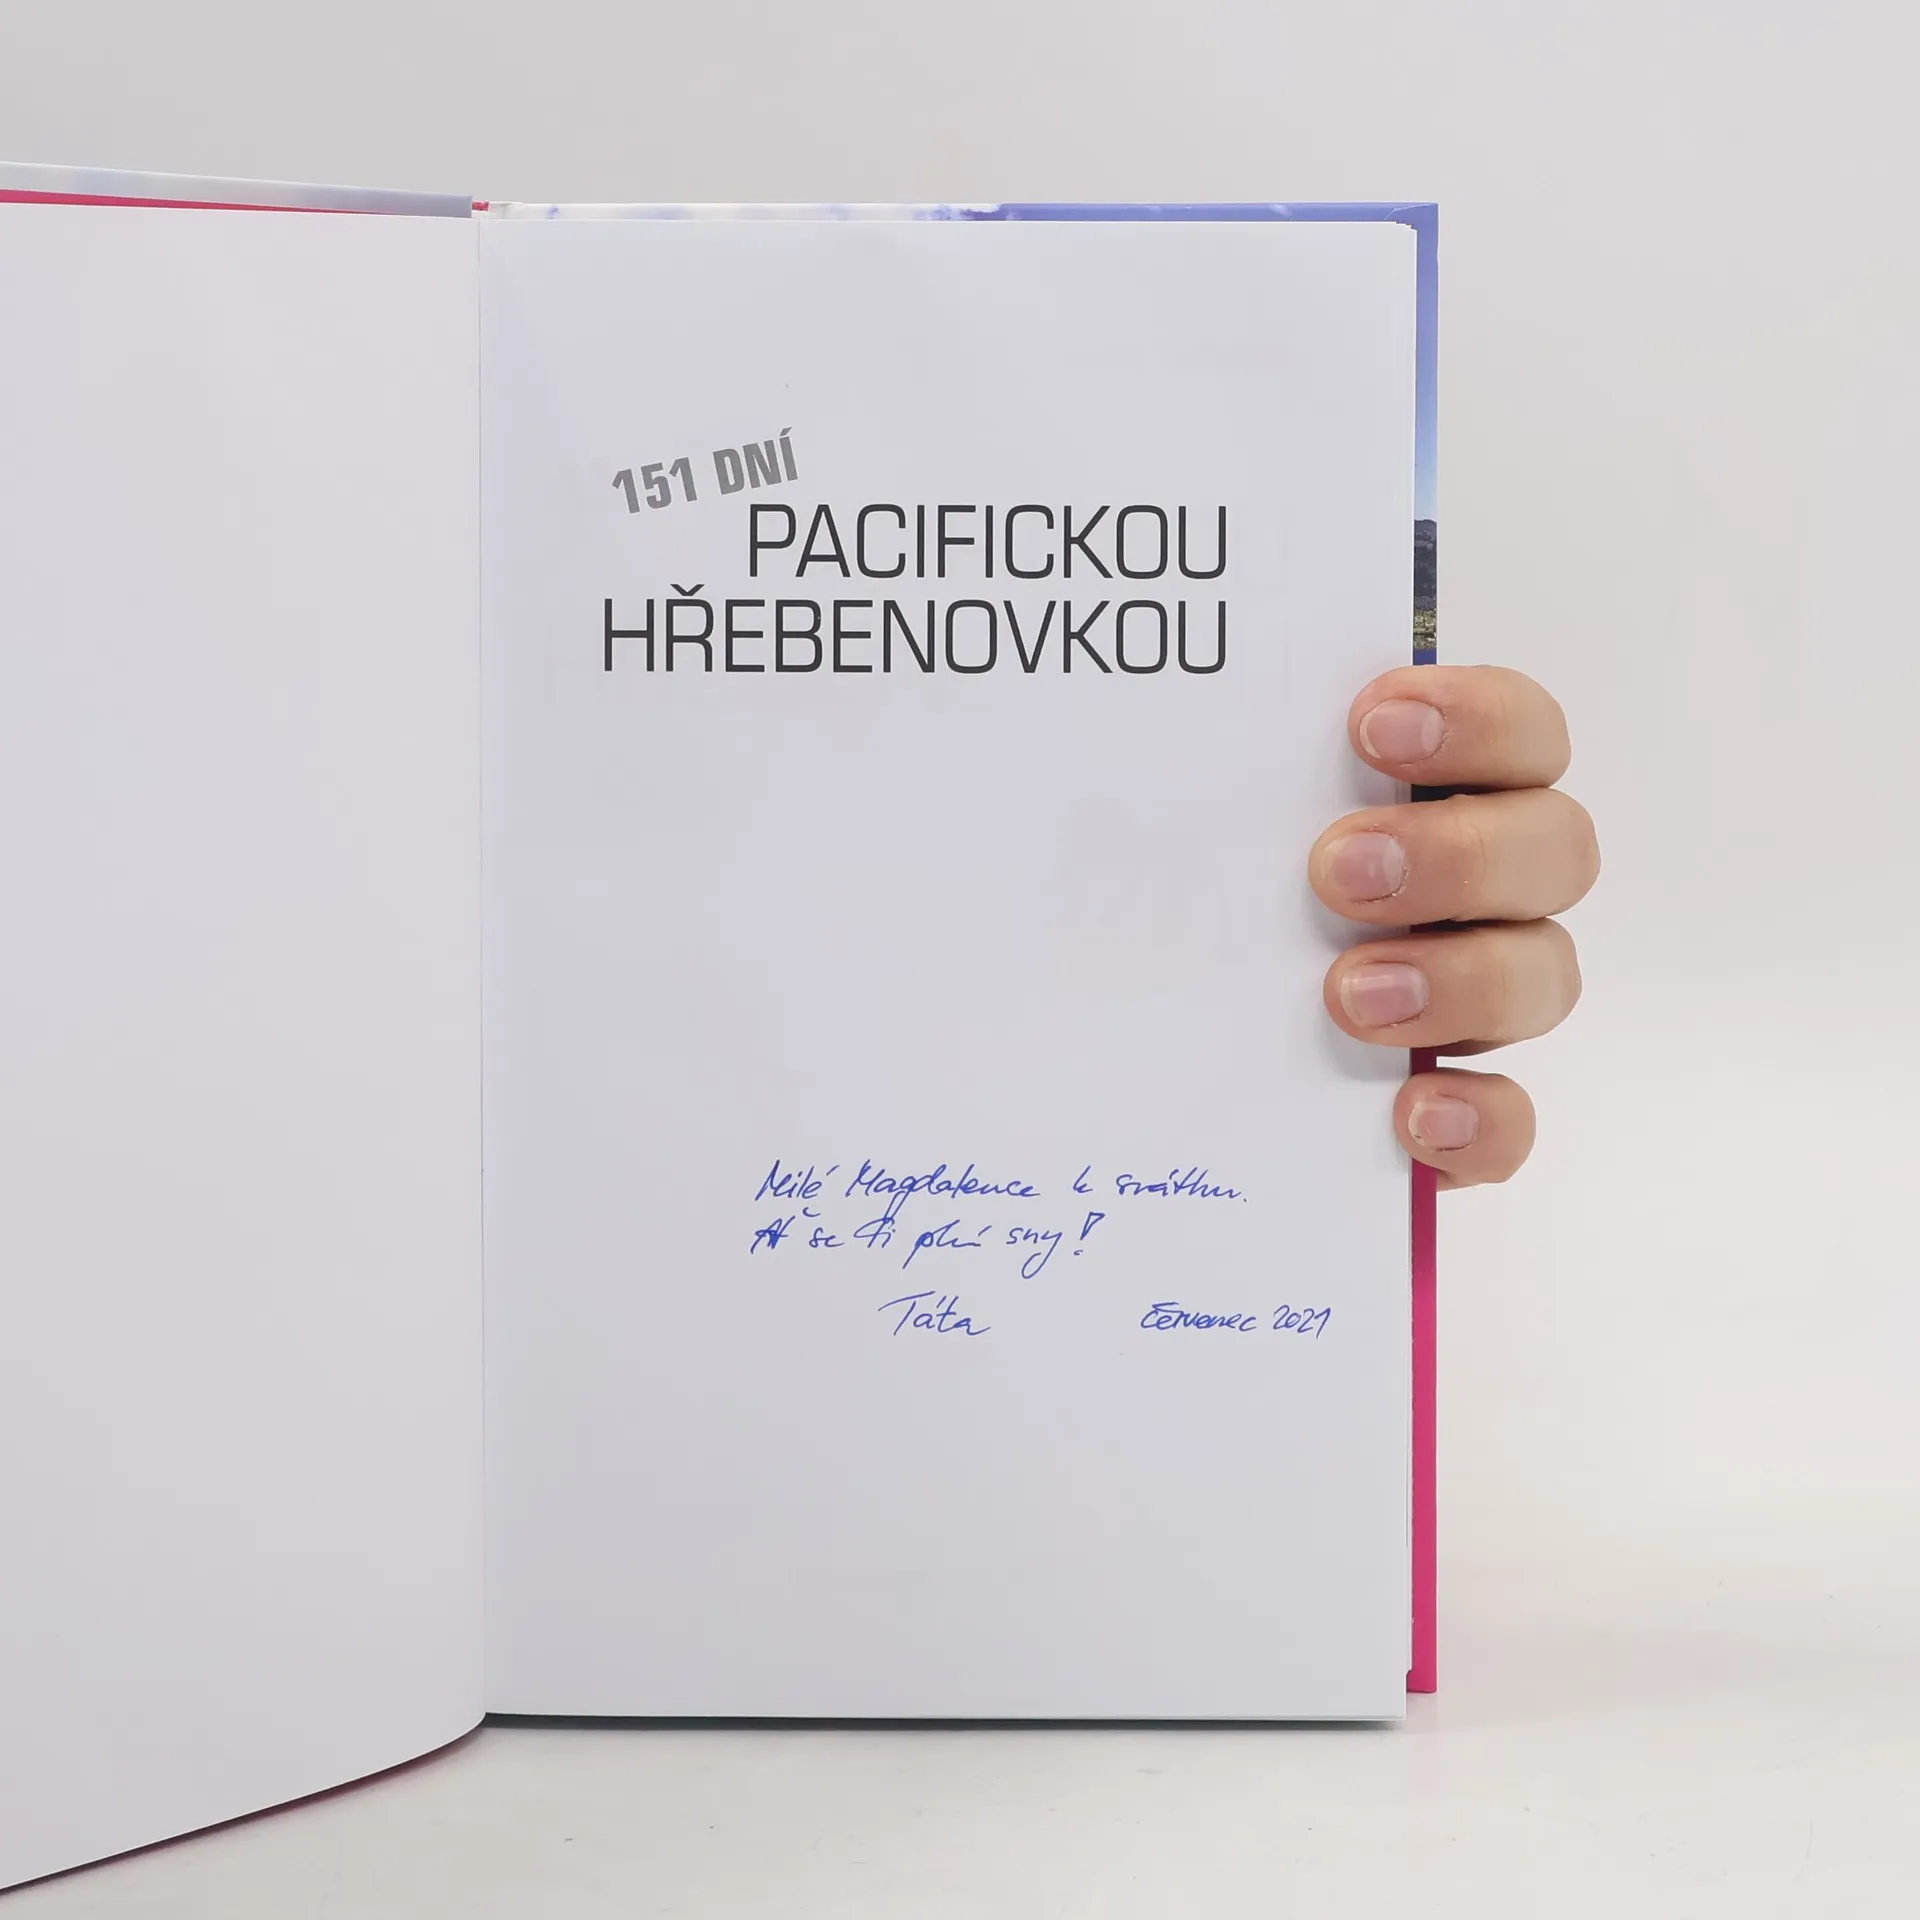 151 DNÍ
PACIFICKOU
HŘEBENOVKOU
Milé Magdalence k svátku.
Ať se Ti plní sny!
Táta červenec 2021